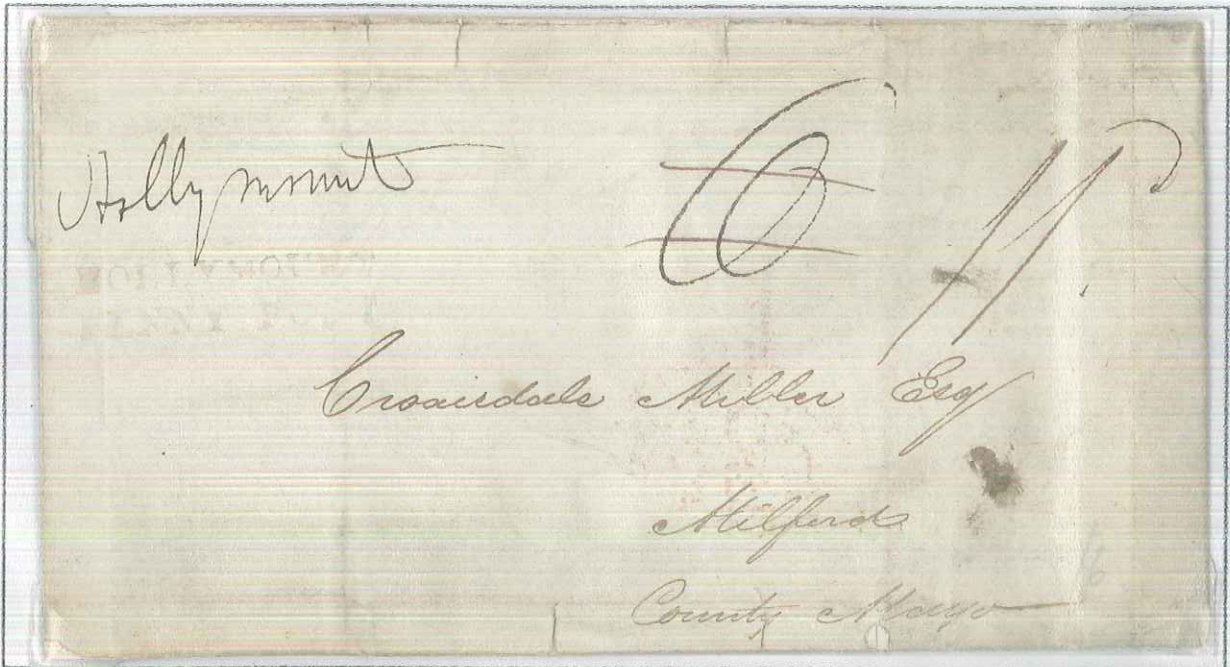 Hollymount
6 11
Croaisdale Miller Esq
Milford
County Mayo